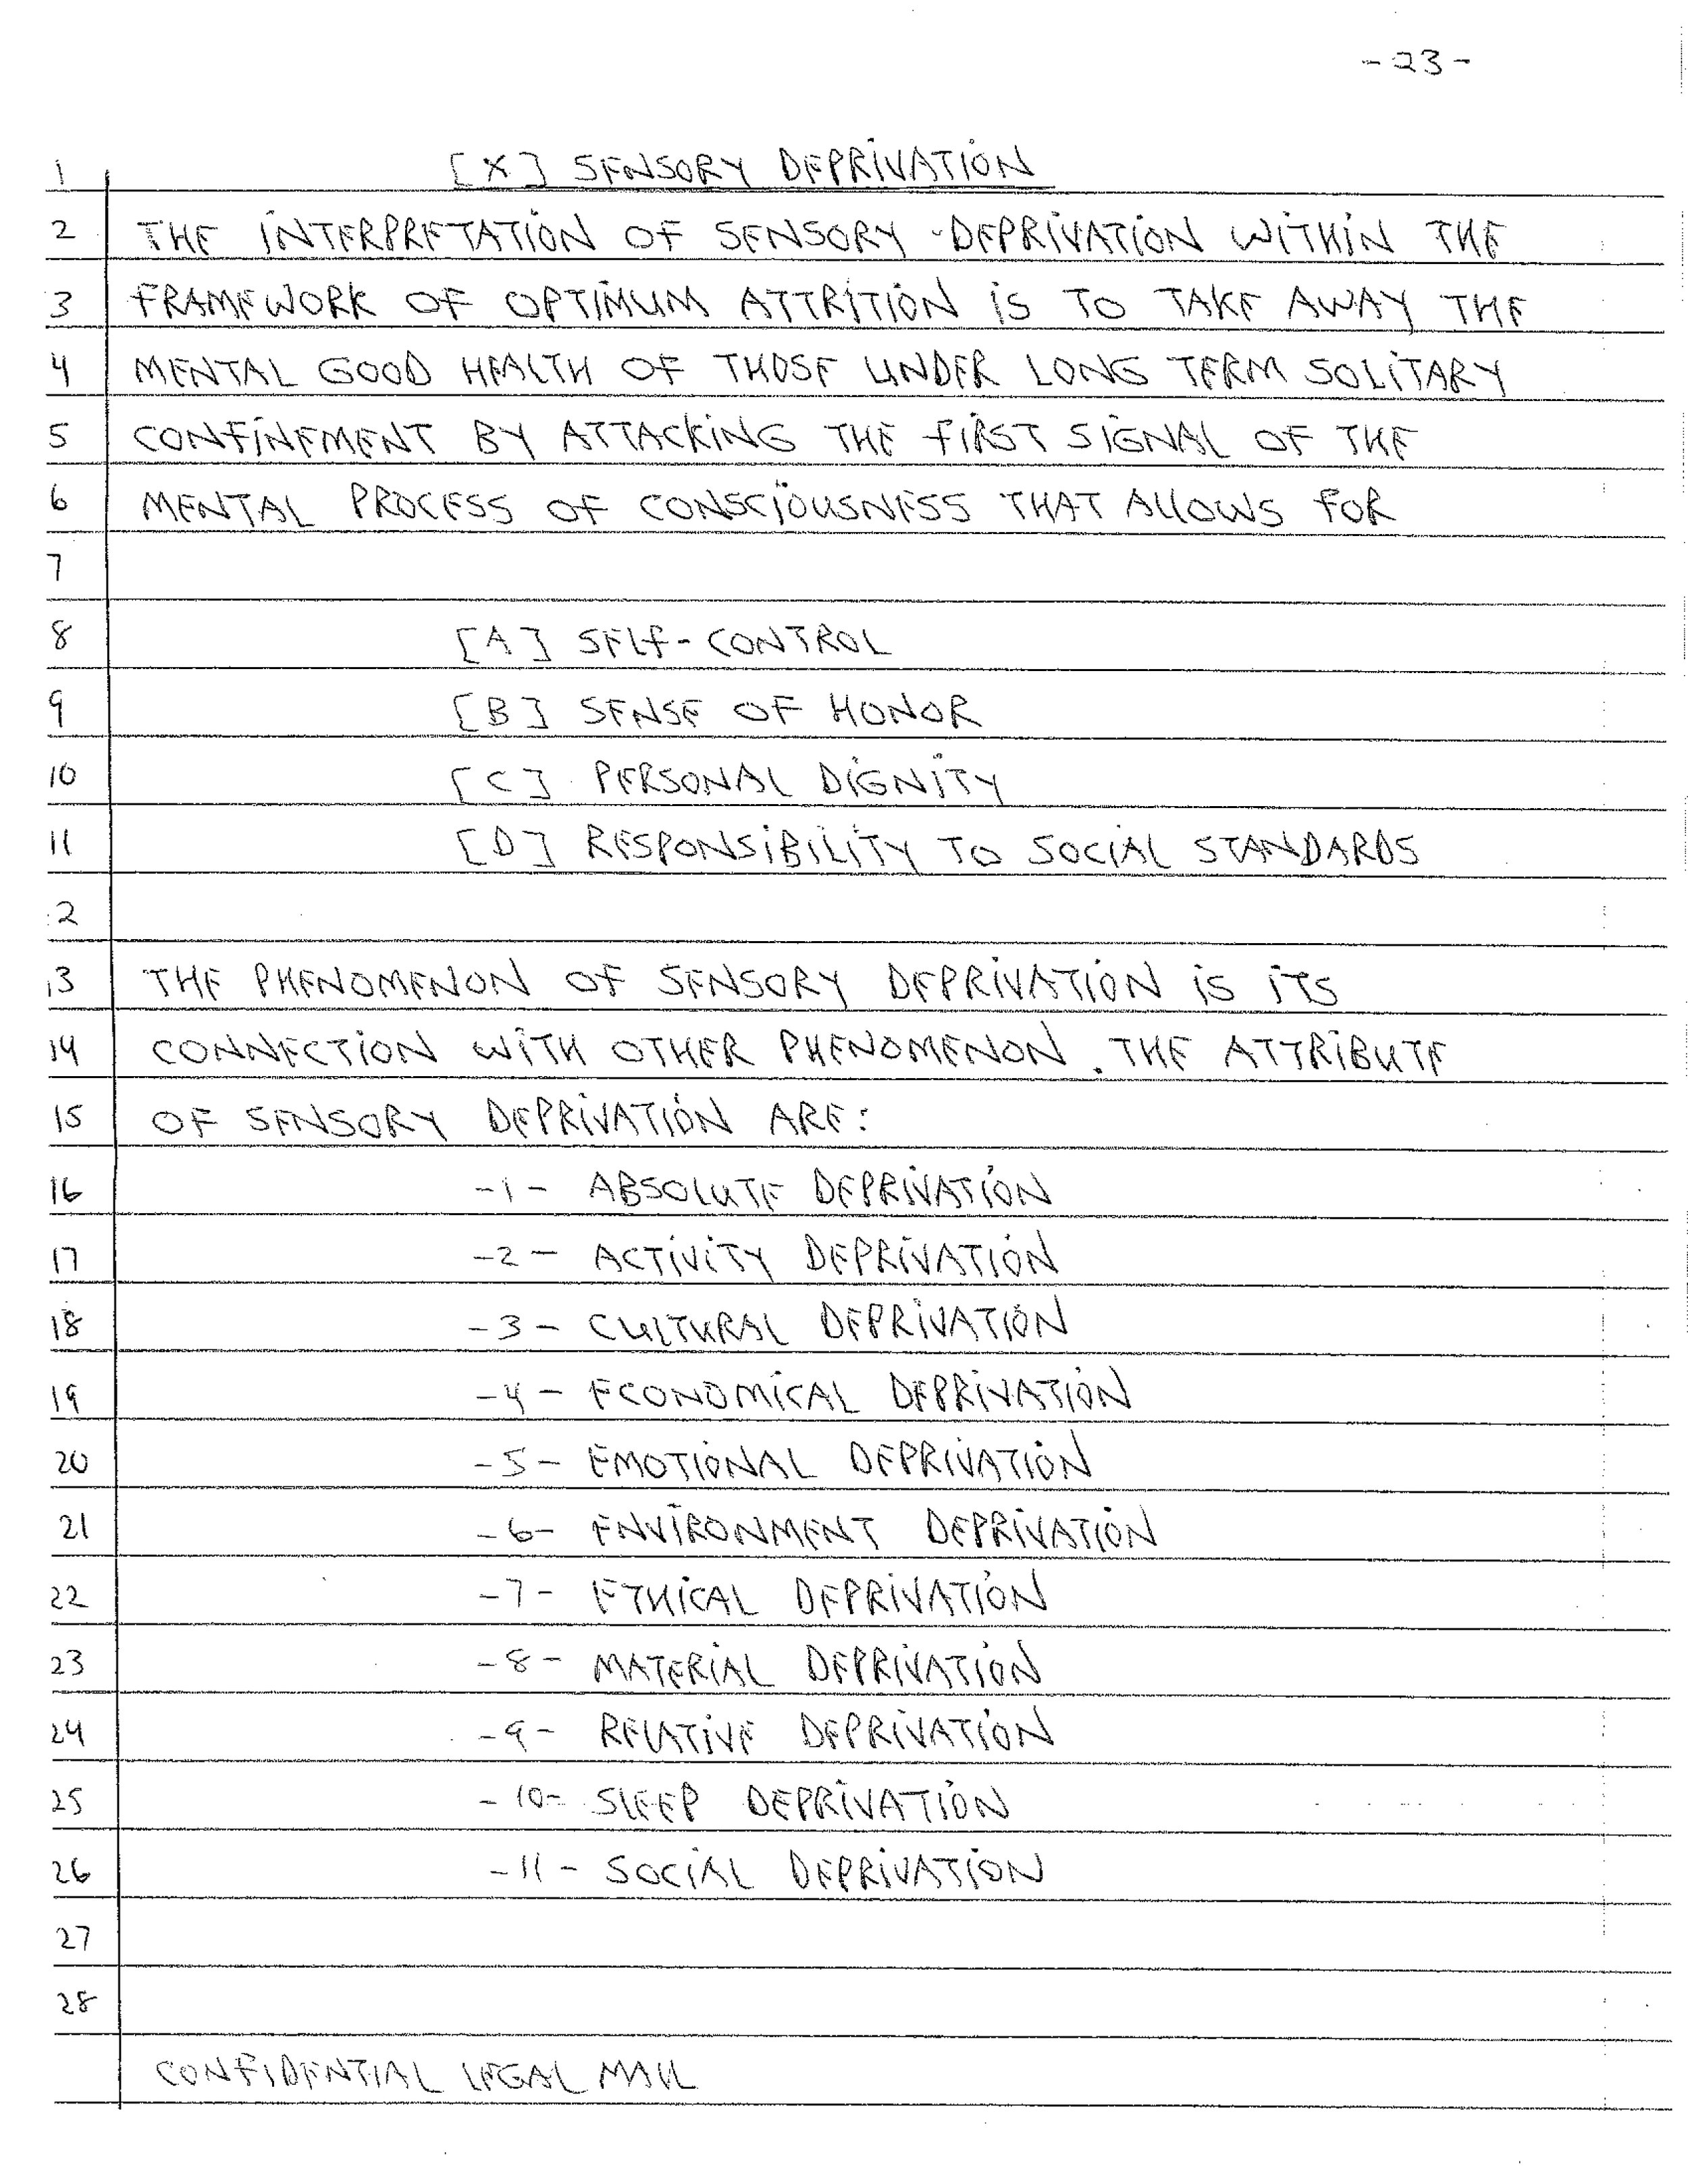 -23-
1 [X] SENSORY DEPRIVATION
2 THE INTERPRETATION OF SENSORY-DEPRIVATION WITHIN THE
3 FRAMEWORK OF OPTIMUM ATTRITION IS TO TAKE AWAY THE
4 MENTAL GOOD HEALTH OF THOSE UNDER LONG TERM SOLITARY
5 CONFINEMENT BY ATTACKING THE FIRST SIGNAL OF THE
6 MENTAL PROCESS OF CONSCIOUSNESS THAT ALLOWS FOR
7
8 [A] SELF-CONTROL
9 [B] SENSE OF HONOR
10 [C] PERSONAL DIGNITY
11 [D] RESPONSIBILITY TO SOCIAL STANDARDS
12
13 THE PHENOMENON OF SENSORY DEPRIVATION IS ITS
14 CONNECTION WITH OTHER PHENOMENON. THE ATTRIBUTE
15 OF SENSORY DEPRIVATION ARE:
16 -1- ABSOLUTE DEPRIVATION
17 -2- ACTIVITY DEPRIVATION
18 -3- CULTURAL DEPRIVATION
19 -4- ECONOMICAL DEPRIVATION
20 -5- EMOTIONAL DEPRIVATION
21 -6- ENVIRONMENT DEPRIVATION
22 -7- ETHICAL DEPRIVATION
23 -8- MATERIAL DEPRIVATION
24 -9- RELATIVE DEPRIVATION
25 -10- SLEEP DEPRIVATION
26 -11- SOCIAL DEPRIVATION
27
28
CONFIDENTIAL LEGAL MAIL